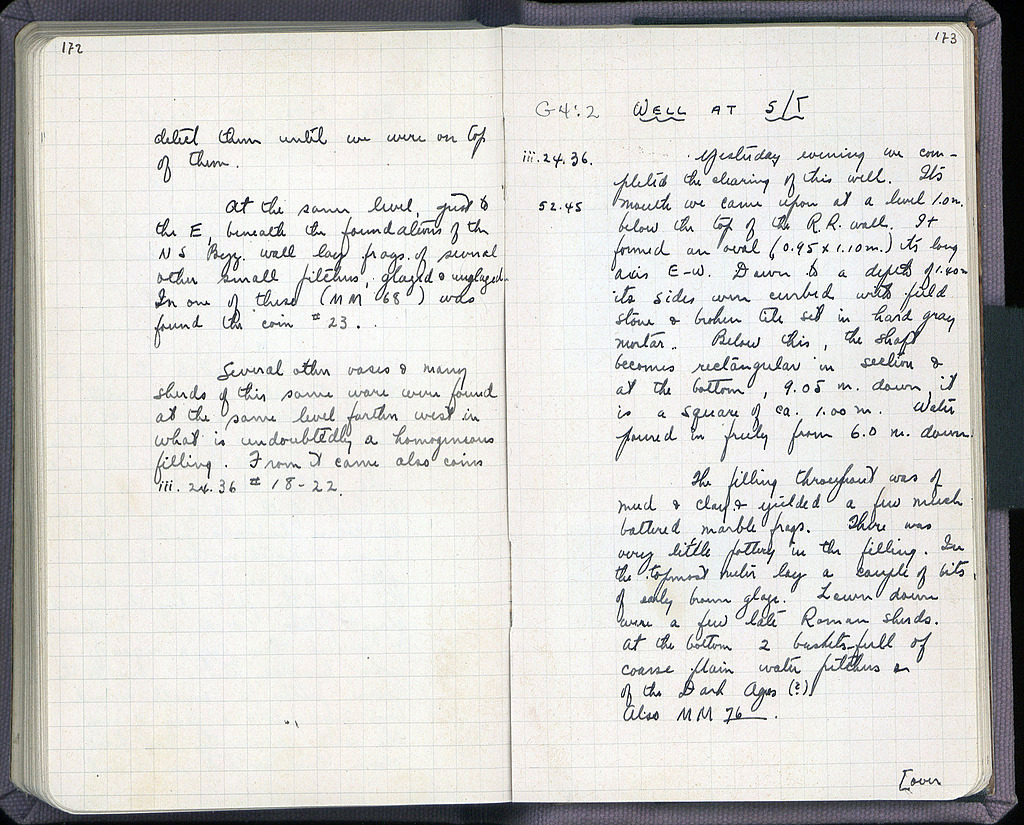 172
detect them until we were on top
of them.
At the same level, just to
the E, beneath the foundations of the
N S Byz. wall lay frags. of several
other small pitchers, glazed & unglazed.
In one of these (MM 68) was
found the coin #23.
Several other vases & many
sherds of this same ware were found
at the same level farther west in
what is undoubtedly a homogenious
filling. From it came also coins
iii.24.36 #18-22.
173
G4:2 WELL AT S/T
iii.24.36. Yesterday evening we com-
pleted the clearing of this well. Its
52.45 mouth we came upon at a level 1.0 m.
below the top of the R.R. wall. It
formed an oval (0.95 x 1.10 m.) its long
axis E-W. Down to a depth of 1.40 m
its sides were curbed with field
stone & broken tile set in hard gray
mortar. Below this, the shaft
becomes rectangular in section &
at the bottom, 9.05 m. down, it
is a square of ca. 1.00 m. Water
poured in freely from 6.0 m. down.
The filling throughout was of
mud & clay & yielded a few much
battered marble frags. There was
very little pottery in the filling. In
the topmost meter lay a couple of bits
of early brown glaze. Lower down
were a few late Roman sherds.
At the bottom 2 baskets-full of
coarse plain water pitchers
of the Dark Ages (?)
Also MM 76.
[over